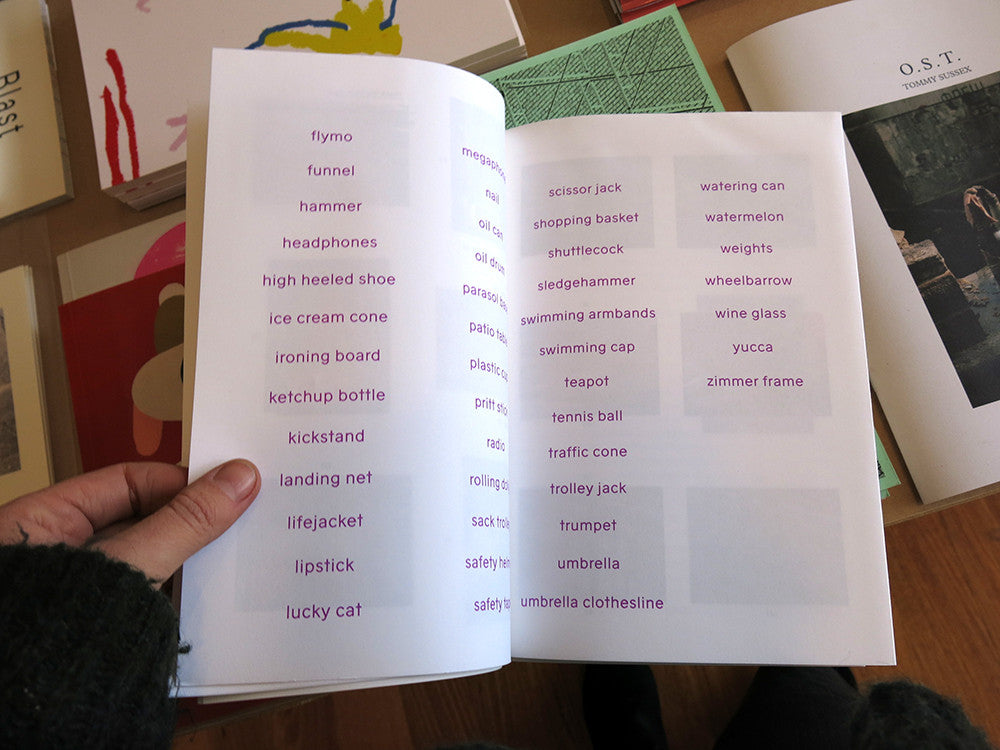 Blast
O.S.T.
TOMMY SUSSEX
flymo
funnel
hammer
headphones
high heeled shoe
ice cream cone
ironing board
ketchup bottle
kickstand
landing net
lifejacket
lipstick
lucky cat
megaphone
nail
oil can
oil drum
parasol
patio table
plastic
pritt
radio
rolling
sack
safety
safety
scissor jack
shopping basket
shuttlecock
sledgehammer
swimming armbands
swimming cap
teapot
tennis ball
traffic cone
trolley jack
trumpet
umbrella
umbrella clothesline
watering can
watermelon
weights
wheelbarrow
wine glass
yucca
zimmer frame